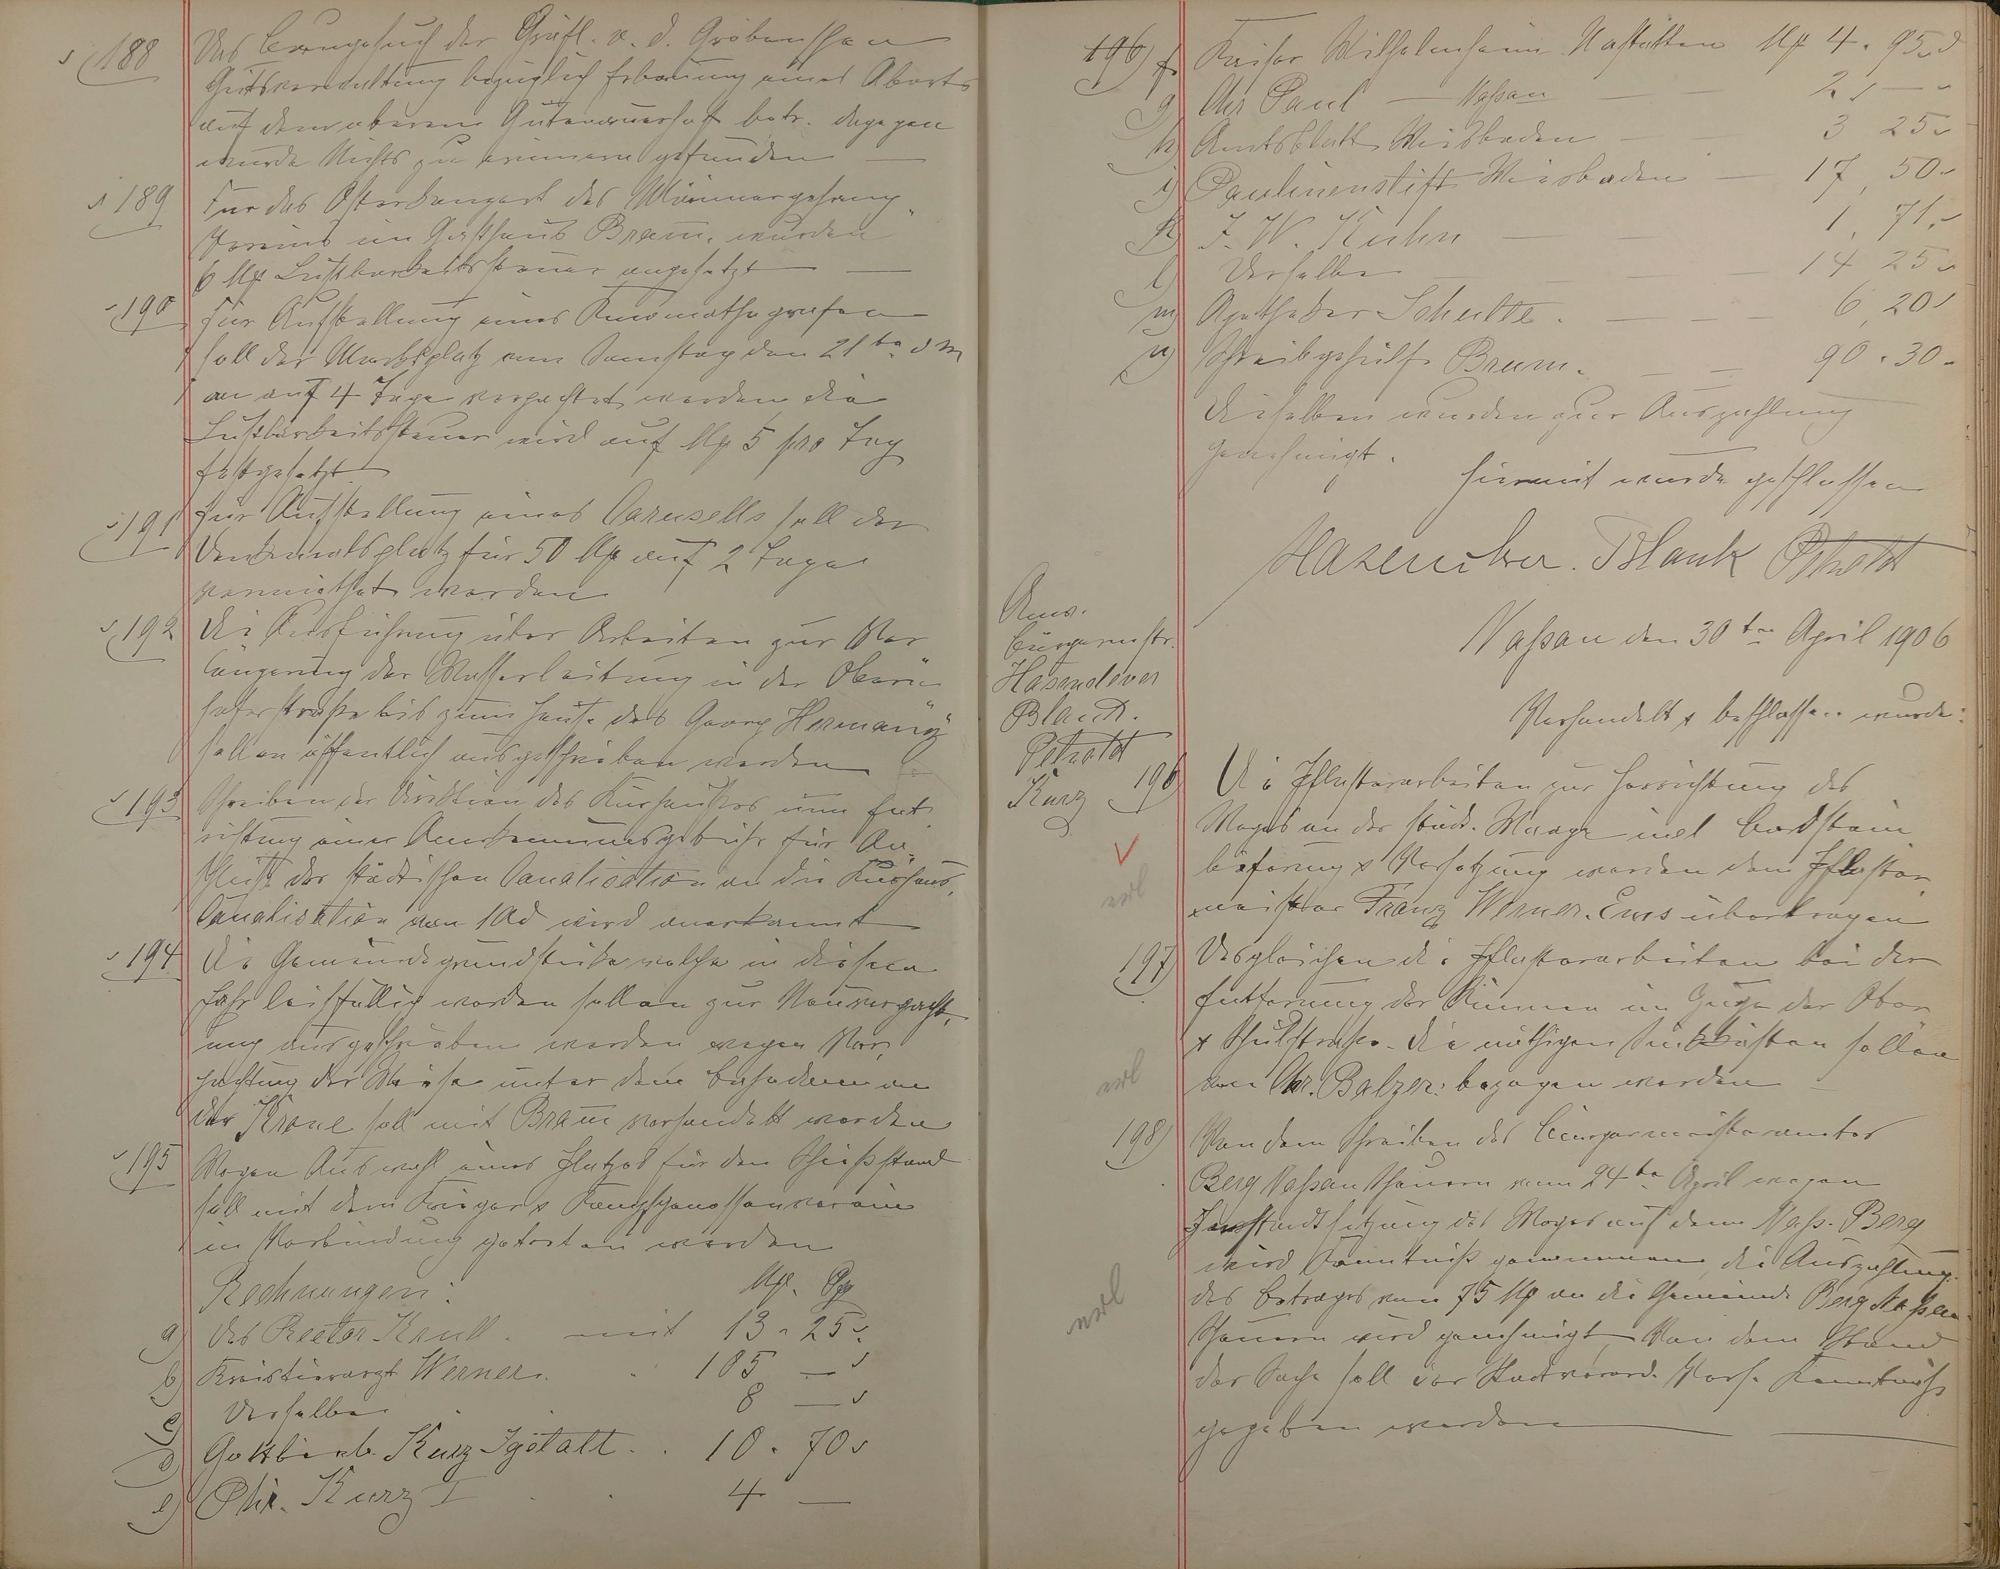 188 Das Baugesuch der Gräfl. v. d. Gröbenschen
Gutsverwaltung bezüglich Erbauung eines Aborts
auf dem oberen Gutenauerhof betr. dagegen
wurde Nichts zu erinnern gefunden —
189 Für das Osterkonzert des Männergesang-
Vereins im Gasthaus Braun, wurden
6 Mk Lustbarkeitssteuer angesetzt —
190 Für Aufstellung eines Kinematografen
soll der Marktplatz am Samstag den 21ten d M
an auf 4 Tage verpachtet werden die
Lustbarkeitssteuer wird auf Mk 5 pro Tag
festgesetzt.
191 Für Aufstellung eines Carusells soll der
Denkmalsplatz für 50 Mk auf 2 Tage
vermiethet werden
192 Die Ausführung über Arbeiten zur Ver
längerung der Wasserleitung in der Obern-
hoferstraße bis zum Hause des Georg Hermani
sollen öffentlich ausgeschrieben werden
193 Schreiben der Direktion des Kurhauses um Ent
richtung einer Anerkennungsgebühr für An-
schluß der städtischen Canalisation an die Kurhaus-
Canalisation von 10 wird anerkannt
194 Die Gemeindegrundstücke welche in diesem
Jahr leihfällig werden sollen zur Neuverpacht-
ung ausgeschrieben werden wegen Ver-
pachtung der Wiese unter dem Badedamm an
der Krone soll mit Braun verhandelt werden
195 Wegen Auswahl eines Platzes für den Schießstand
soll mit dem Krieger & Kampfgenossenverein
in Verbindung getreten werden
Rechnungen: Mk. Pfg
a) Des Rector Krull. mit 13 . 25
b) Kreistierarzt Werner. 105 —
c) Derselbe 8 —
d) Gottlieb Kurz . . 10 . 70
e) Phi. Kurz I . . 4 —
196) f. Kaiser Wilhelmheim Nastätten Mk 4 . 95
g) Chr Paul — Naßau — — 2, —
h) Amtsblatt Wiesbaden — 3 25
i) Paulinenstift Wiesbaden — 17, 50
k) J. W. Kuhn — — 1, 71
l) Derselbe — — 14 25
m) Apotheker Schulte. — — — 6, 20
n) Schreibgehülfe Braun. — — 90 . 30
Dieselben wurden zur Auszahlung
genehmigt.
hiermit wurde geschlossen
Hasenclever. Blank Petzold
Anw.
Bürgermstr.
Hasenclever
Blank.
Petzold
Kurz
Naßau den 30ten April 1906
Verhandelt & beschlossen wurde:
196) Die Pflasterarbeiten zur Herrichtung des
Weges an der städt. Waage incl Bordstein
lieferung & Versetzung werden dem Pflaster-
meister Franz Werner. Ems übertragen
197) Desgleichen die Pflasterarbeiten bei der
Entfernung der Rinnen im Zuge der Ober
& Schulstraße. Die nöthigen Sinkkasten sollen
von Chr. Balzer. bezogen werden
198) Von dem Schreiben des Bürgermeisteramtes
Berg Naßau Scheuern vom 24ten April wegen
Instandsetzung des Weges auf dem Nass. Berg
wird Kenntniß genommen, die Auszahlung
des Betrages von 75 Mk an die Gemeinde Berg Naßau
Scheuern wird genehmigt, Von dem Stand
der Sache soll der Stadtverord. Vers. Kenntniß
gegeben werden —